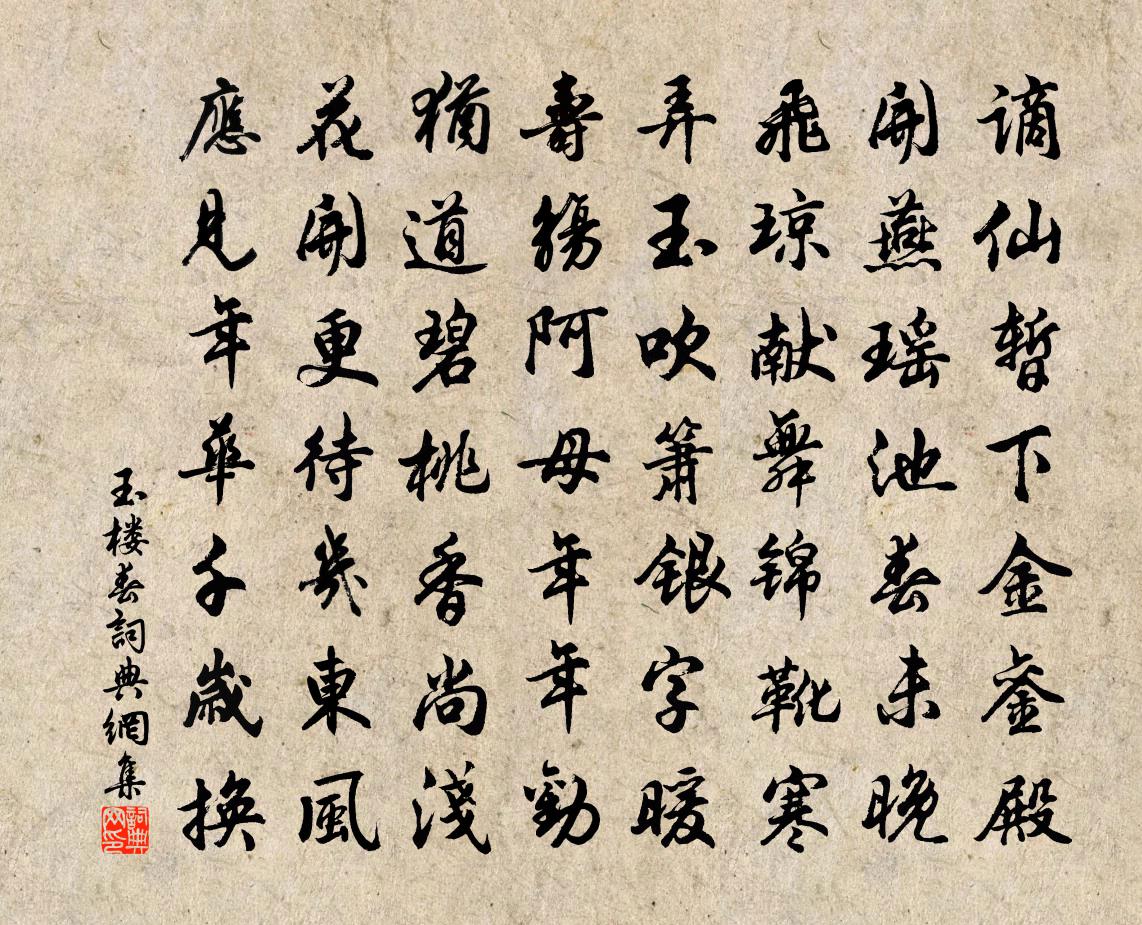 謫仙暫下金鑾殿
開燕瑶池春未晚
飛瓊献舞錦靴寒
弄玉吹簫銀字暖
壽觴阿母年年勸
猶道碧桃香尚淺
花開更待幾東風
應見年華千歲換
玉楼春詞典網集
詞典网印